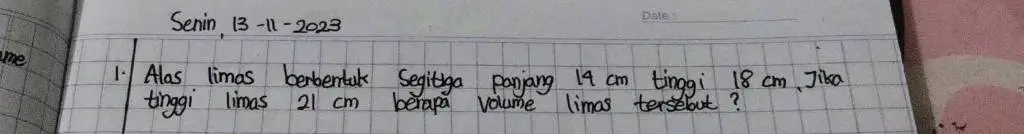 Senin, 13 - 11 - 2023
Date :
ume
1. Alas limas berbentuk Segitiga panjang 14 cm tinggi 18 cm, Jika
tinggi limas 21 cm berapa volume limas tersebut ?